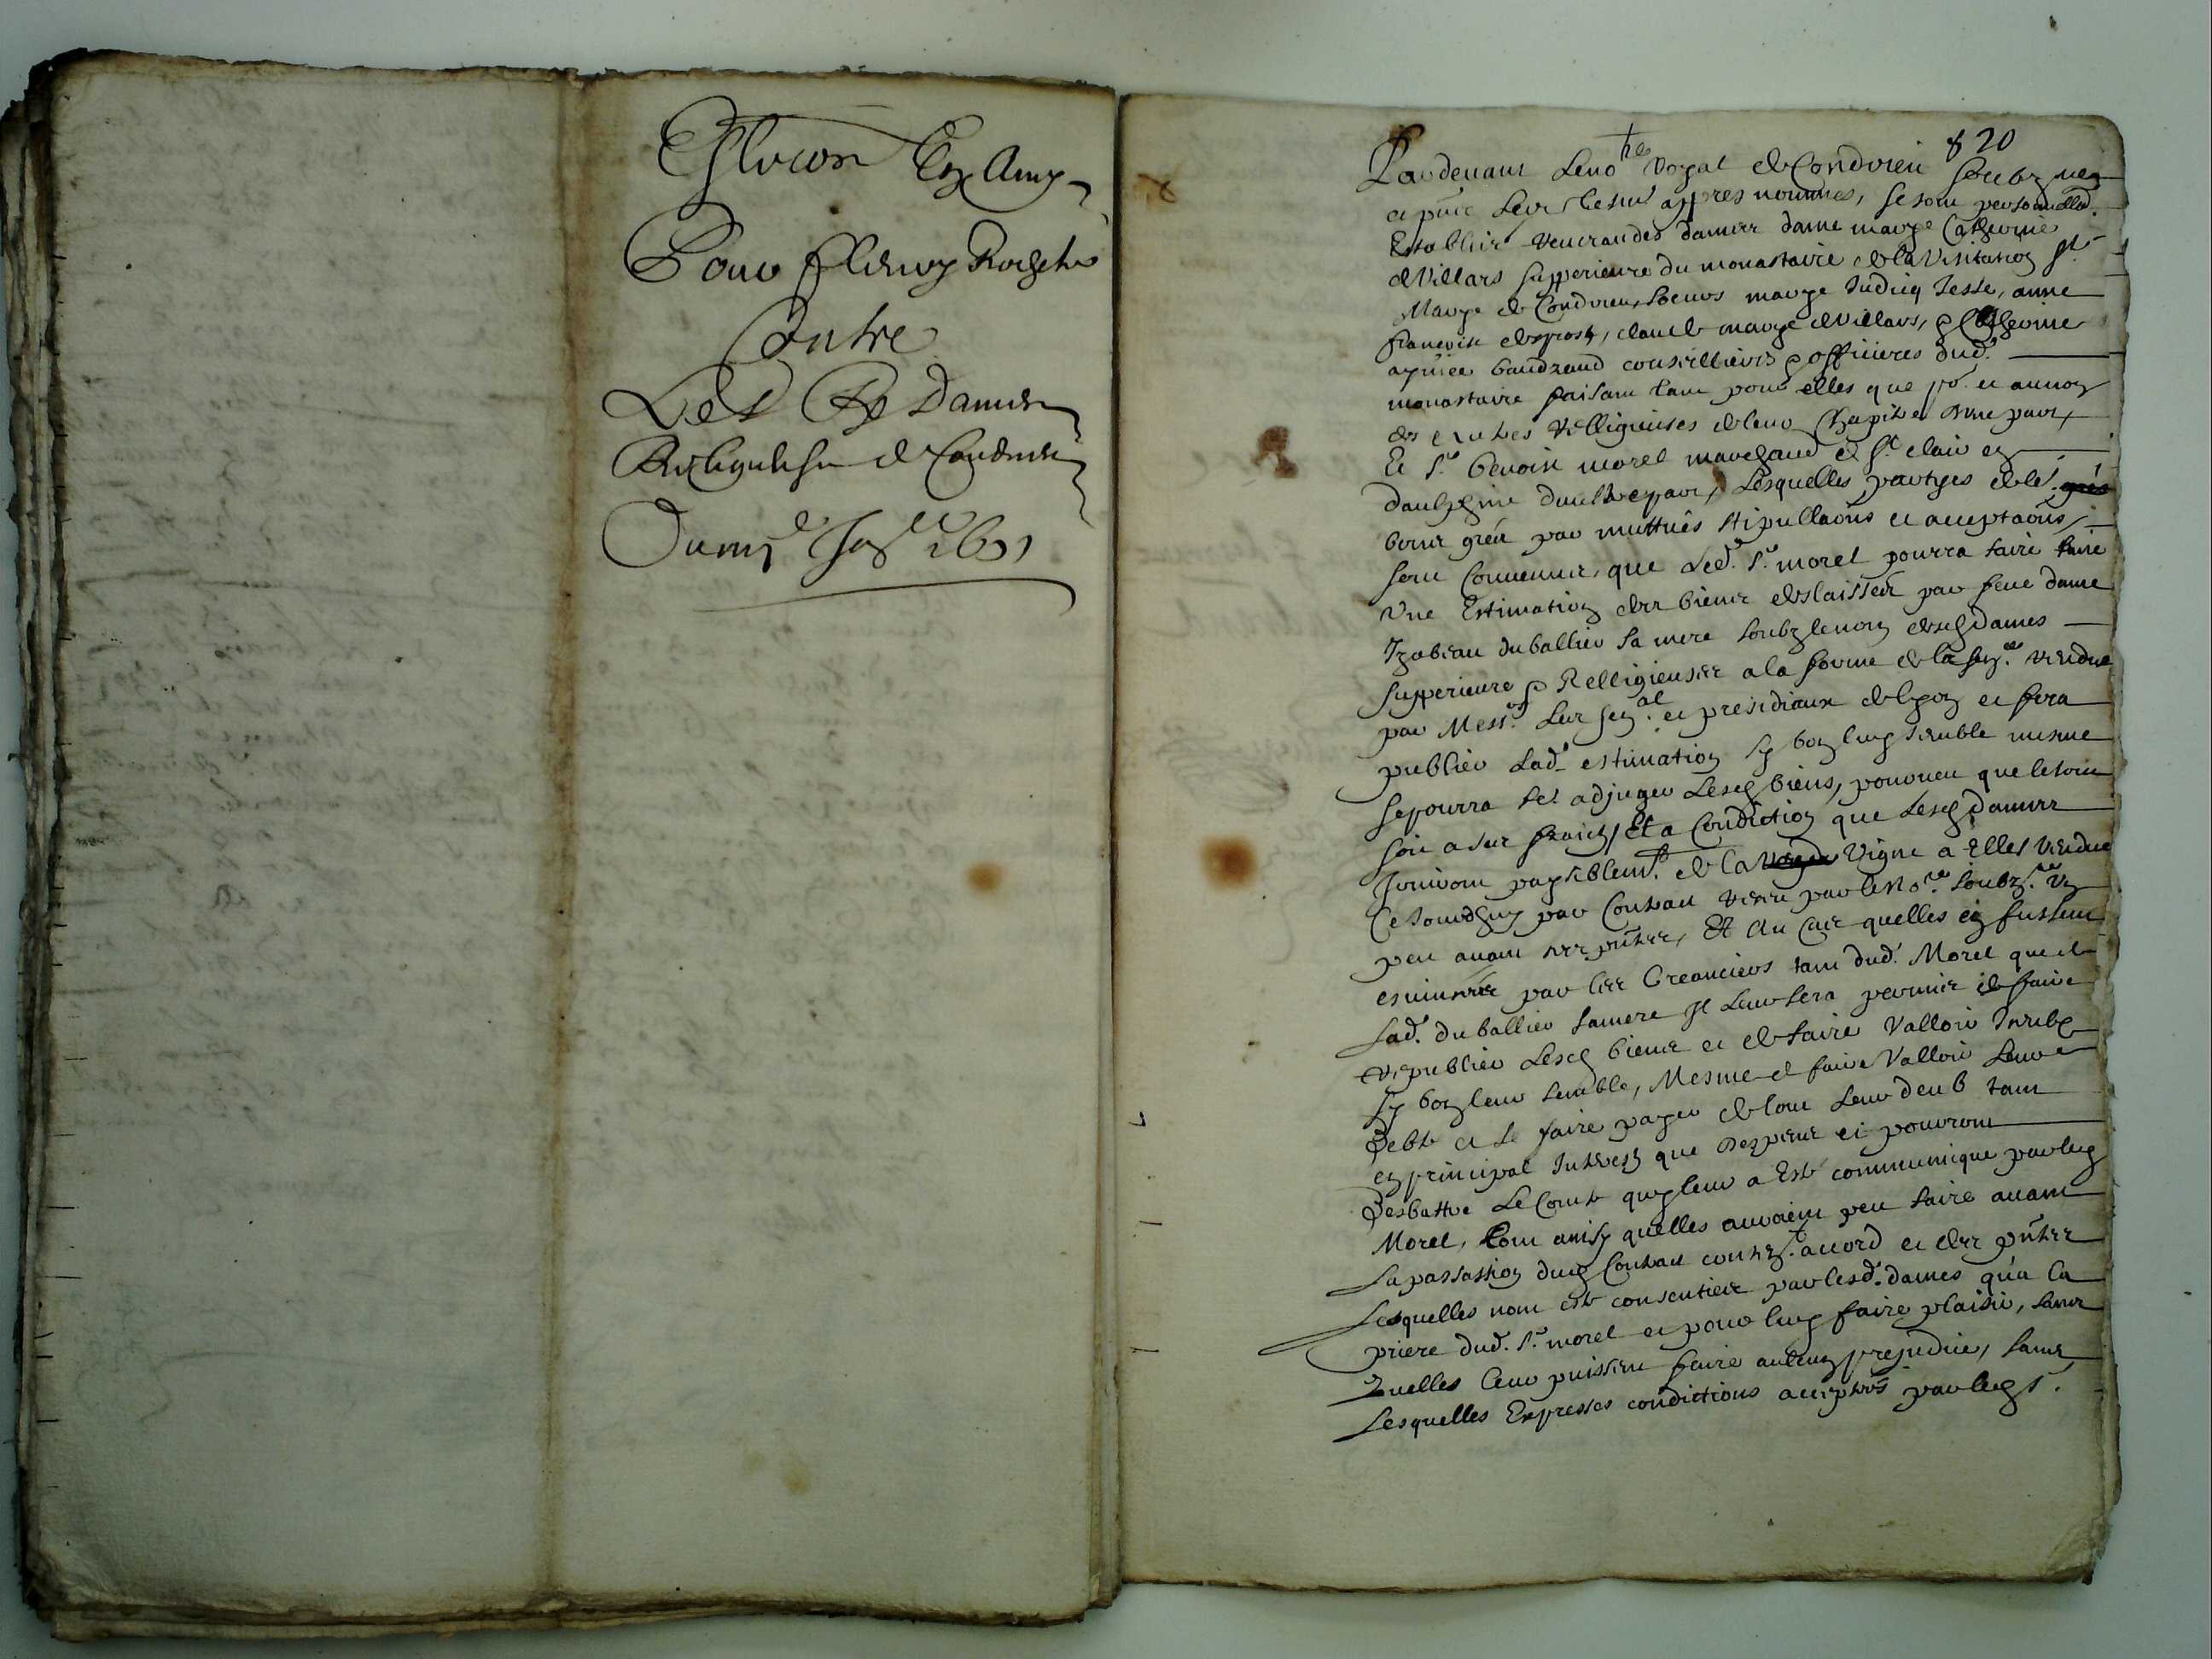 Pour fleury Rochete
Contre
Les Rdes Dames
Religieuses de Condrieu
820
Pardevant Leno.re Royal de Condrieu soubzne
et pnce Les tesms appres nommes, se sont personnelle.
Establies venerandes dames dame marye Catherine
de Villars supperieure du monastaire de la Visitation Ste
Marye de Condrieu, soeurs marye Judicq Jesse, anne
francoise desprost, claude marye de Villars, & Catherine
aymee baudrand conseillieres & officieres dud.
monastaire faisant tant pour elles que po. et au nom
des autres Relligieuses de leur Chapitre dune part,
Et Sr. benoist morel marchand de St. clair en
daulphine daultre part, Lesquelles partyes de les gres
bons gréz par muttues stipullaons et acceptaons,
sont Convenues, que Led. Sr. morel pourra faire faire
Une Estimation des biens deslaissez par feue dame
Izabeau duballier sa mere soubz le nom desd dames
supperieure & Relligieuses a la forme de la sen.ce rendue
par Mess.rs Les sen.al et presidiaux de lyon et fera
publier Lad. estimation sy bon luy semble mesme
se pourra fe. adjuger Lesd biens, pourveu que le tout
soit a ses fraicz, Et a Condiction que Lesd dames
Jouiront paysiblem.t de la Vigne a Elles Vendue
Ce jourdhuy par Contract receu par le No.re soubz.ne Un
peu avant ses pntes, Et Au Cas quelles en fussent
esvinsées par les Creanciers tant dud. Morel que de
Lad. duballier sa mere Il Leur sera permis de faire
republier Lesd biens et de faire Valloir
sy bon leur semble, Mesme de faire Valloir Leur
Debte et se faire payer de tout Leur deub tant
en principal Interestz que Despens et pourront
Desbattre Le Compte quy leur a Esté communique par led
Morel, tout ainsy quelles auroient peu faire avant
La passassion dud Contract accord et des pntes
Lesquelles nont esté consenties par lesd. dames qua la
priere dud. Sr. morel et pour luy faire plaisir, sans
quelles leur puissent faire aulcun prejudice, sans
Lesquelles Expresses condictions acceptes par led S.